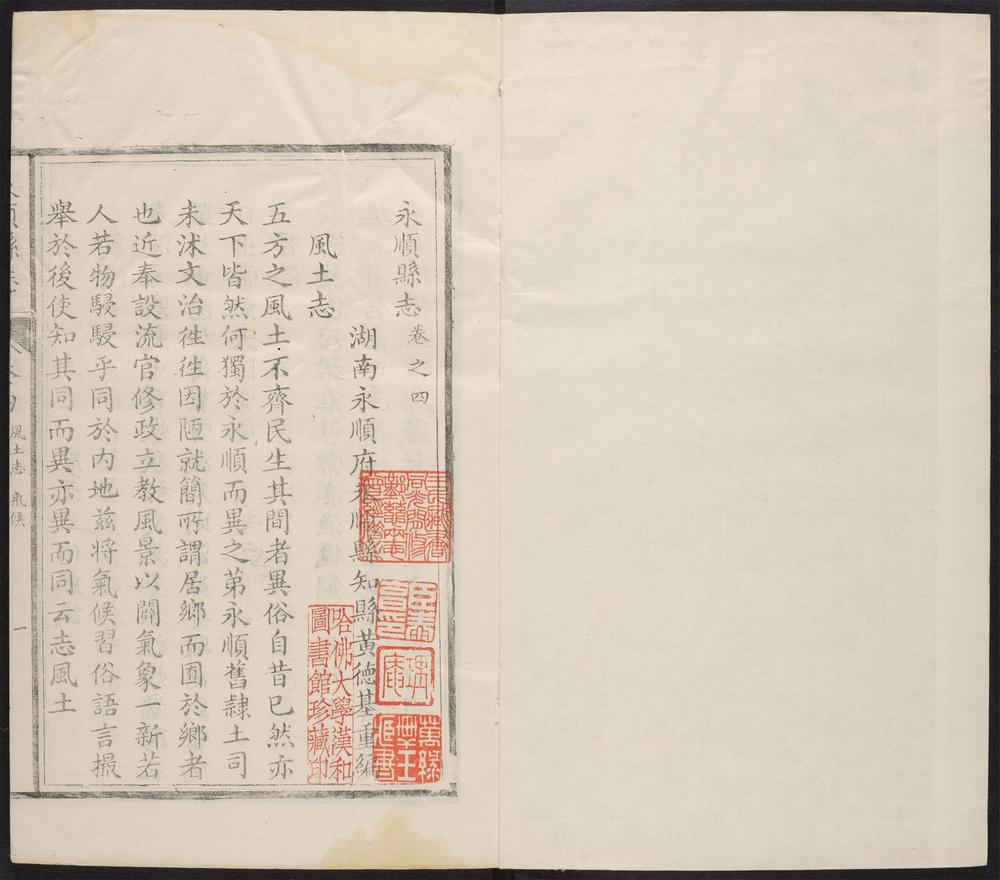 永順縣志 卷之四
湖南永順府永順縣知縣黃德基重編
風土志
五方之風土不齊民生其間者異俗自昔已然亦
天下皆然何獨於永順而異之苐永順舊隷土司
未沭文治徃徃因陋就簡所謂居鄉而囿於鄉者
也近奉設流官修政立教風景以關氣象一新若
人若物駸駸乎同於内地兹將氣候習俗語言撮
舉於後使知其同而異亦異而同云志風土
風土志 氣候
一
哈佛大學漢和
圖書館珍藏印